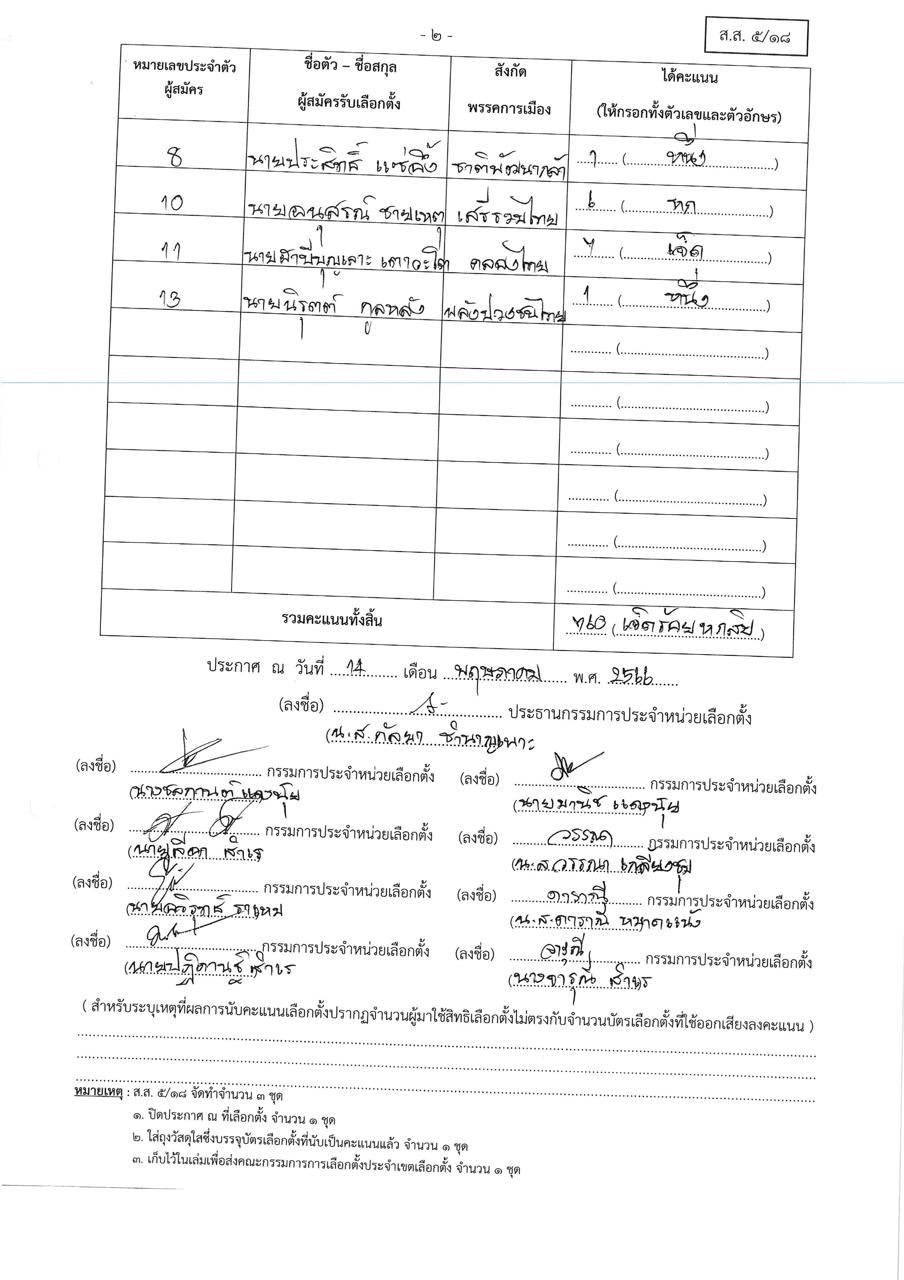 - ๒ -
ส.ส. ๕/๑๘
หมายเลขประจำตัว ผู้สมัคร ชื่อตัว – ชื่อสกุล ผู้สมัครรับเลือกตั้ง สังกัด พรรคการเมือง ได้คะแนน (ให้กรอกทั้งตัวเลขและตัวอักษร)
8 นายประสิทธิ์ แซ่ผึ้ง ชาติพัฒนากล้า 1 (หนึ่ง)
10 นายอนุสรณ์ ชายเหตุ เสรีรวมไทย 6 (หก)
11 คลองไทย 7 (เจ็ด)
13 นายนิรุตต์ กูลหลัง พลังปวงชนไทย 1 (หนึ่ง)
........... (....................................)
........... (....................................)
........... (....................................)
........... (....................................)
........... (....................................)
........... (....................................)
รวมคะแนนทั้งสิ้น 760 (เจ็ดร้อยหกสิบ)
ประกาศ ณ วันที่ 14 เดือน พฤษภาคม พ.ศ. 2566
(ลงชื่อ) ประธานกรรมการประจำหน่วยเลือกตั้ง
(น.ส.กัลยา ชำนาญเพาะ
(ลงชื่อ) กรรมการประจำหน่วยเลือกตั้ง (ลงชื่อ) กรรมการประจำหน่วยเลือกตั้ง
(นางชลกานต์ แดงนุ้ย (นายมานิช แดงนุ้ย
(ลงชื่อ) กรรมการประจำหน่วยเลือกตั้ง (ลงชื่อ) วรรณา กรรมการประจำหน่วยเลือกตั้ง
(น.ส.วรรณา
(ลงชื่อ) กรรมการประจำหน่วยเลือกตั้ง (ลงชื่อ) ดาราณี กรรมการประจำหน่วยเลือกตั้ง
(น.ส.ดาราณี
(ลงชื่อ) กรรมการประจำหน่วยเลือกตั้ง (ลงชื่อ) จารุณี กรรมการประจำหน่วยเลือกตั้ง
(นางจารุณี
( สำหรับระบุเหตุที่ผลการนับคะแนนเลือกตั้งปรากฏจำนวนผู้มาใช้สิทธิเลือกตั้งไม่ตรงกับจำนวนบัตรเลือกตั้งที่ใช้ออกเสียงลงคะแนน )
หมายเหตุ : ส.ส. ๕/๑๘ จัดทำจำนวน ๓ ชุด
๑. ปิดประกาศ ณ ที่เลือกตั้ง จำนวน ๑ ชุด
๒. ใส่ถุงวัสดุใสซึ่งบรรจุบัตรเลือกตั้งที่นับเป็นคะแนนแล้ว จำนวน ๑ ชุด
๓. เก็บไว้ในเล่มเพื่อส่งคณะกรรมการการเลือกตั้งประจำเขตเลือกตั้ง จำนวน ๑ ชุด